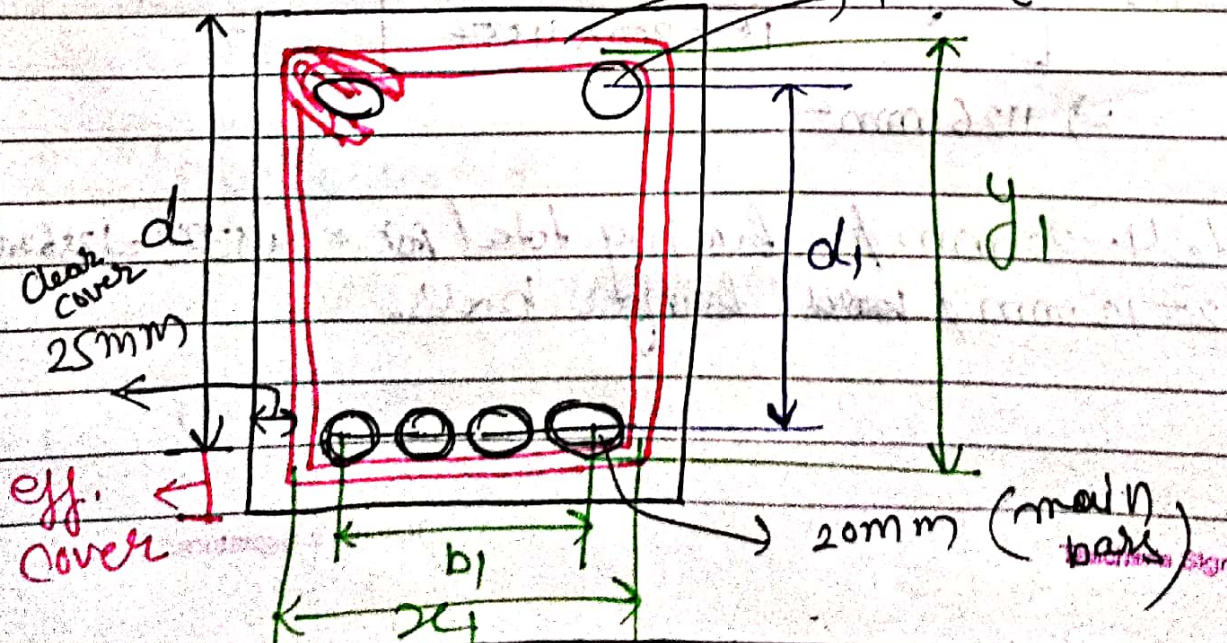 d
clear
cover
25mm
eff.
cover
d1
y1
b1
x1
20mm (main
bars)